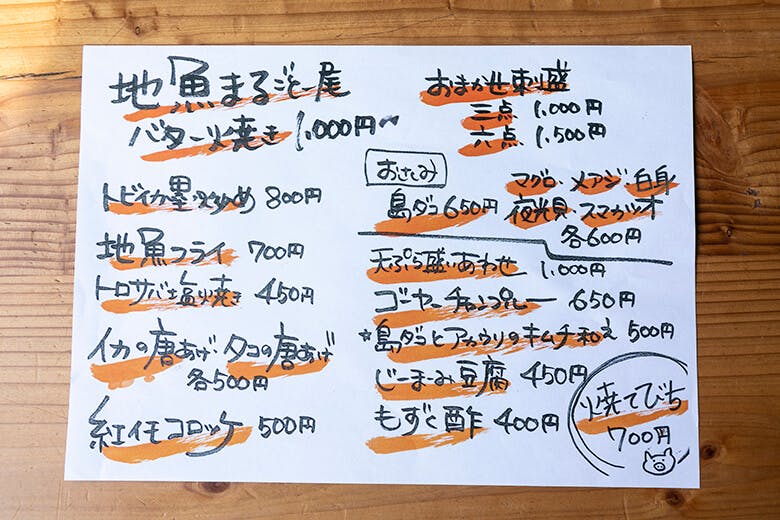 地魚まるごと一尾
バター焼き 1,000円〜
トビイカ墨炒め 800円
地魚フライ 700円
トロサバ塩焼き 450円
イカの唐あげ・タコの唐あげ
各500円
紅イモコロッケ 500円
おまかせ刺し盛
三点 1,000円
六点 1,500円
おさしみ
島ダコ 650円
マグロ・メアジ・白身
夜光貝・スマガツオ
各600円
天ぷら盛いあわせ 1,000円
ゴーヤーチャンプルー 650円
☆島ダコとアカウリのキムチ和え 500円
じーまーみ豆腐 450円
もずく酢 400円
焼てびち
700円